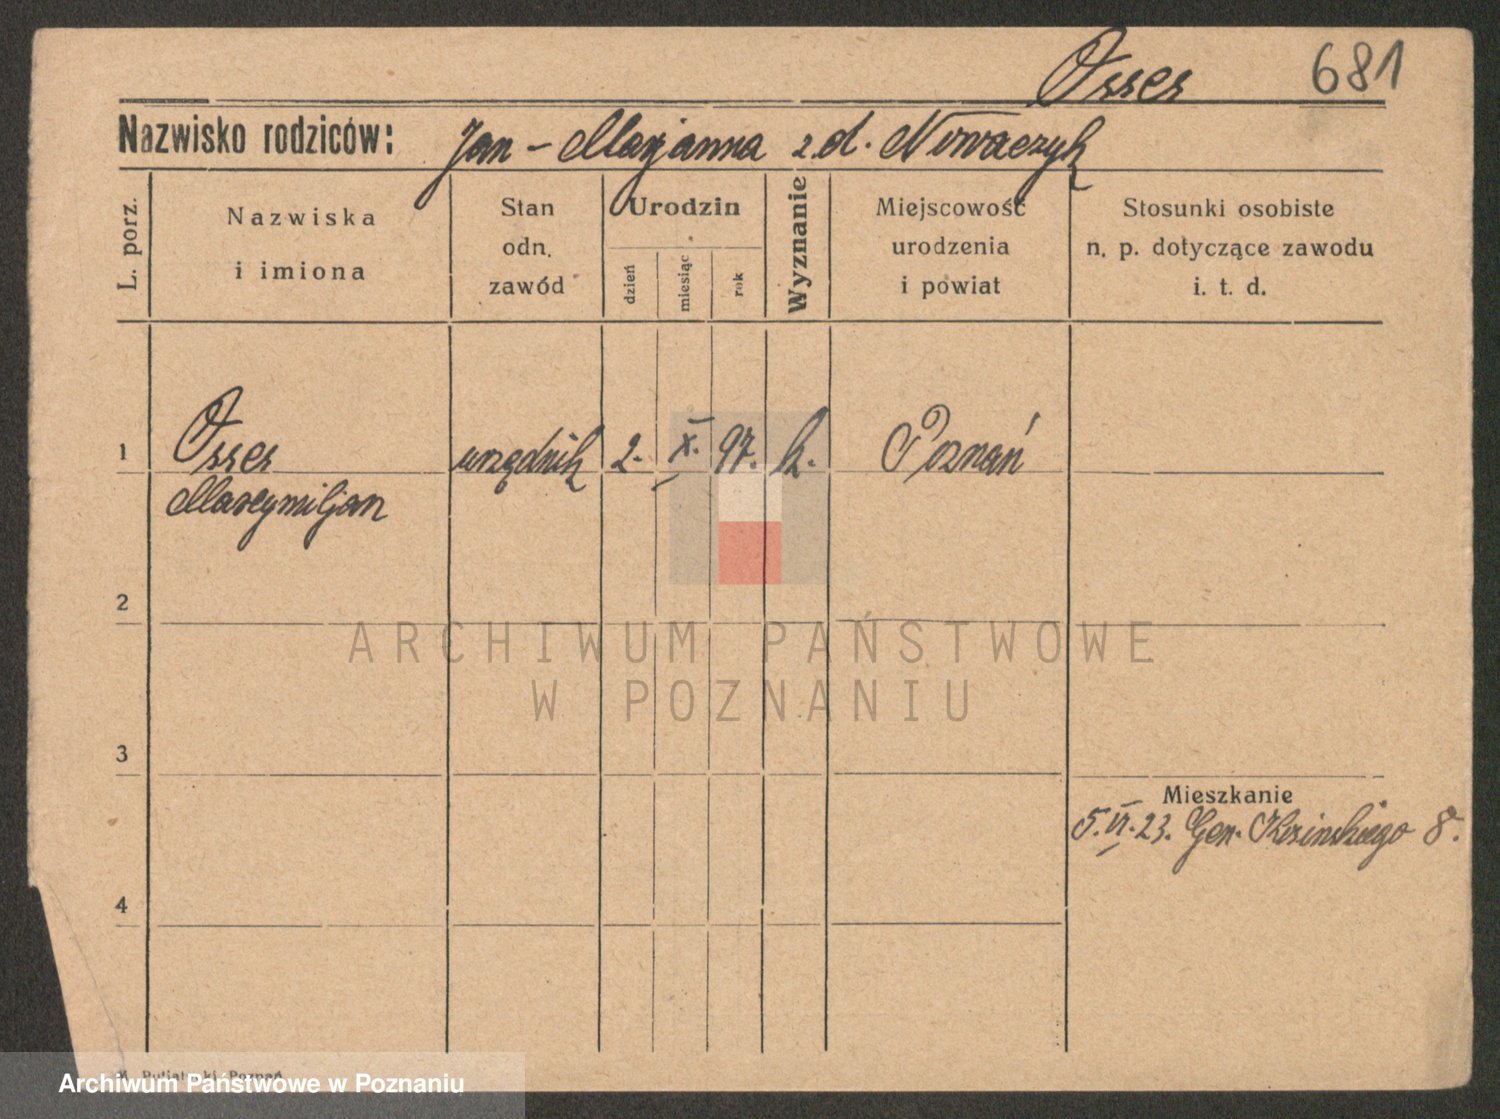 Osses 681
Nazwisko rodziców: Jan - Marjanna z.d. Nowaczyk
L. porz.
Nazwiska
i imiona
Stan
odn.
zawód
Urodzin
dzień
miesiąc
rok
Wyznanie
Miejscowość
urodzenia
i powiat
Stosunki osobiste
n. p. dotyczące zawodu
i. t. d.
1 Osses urzędnik 2. X. 97. k. Poznań
Maxymiljan
2
ARCHIWUM PAŃSTWOWE
W POZNANIU
3
Mieszkanie
5.VI.23. Gen. 8.
4
Poznań
Archiwum Państwowe w Poznaniu